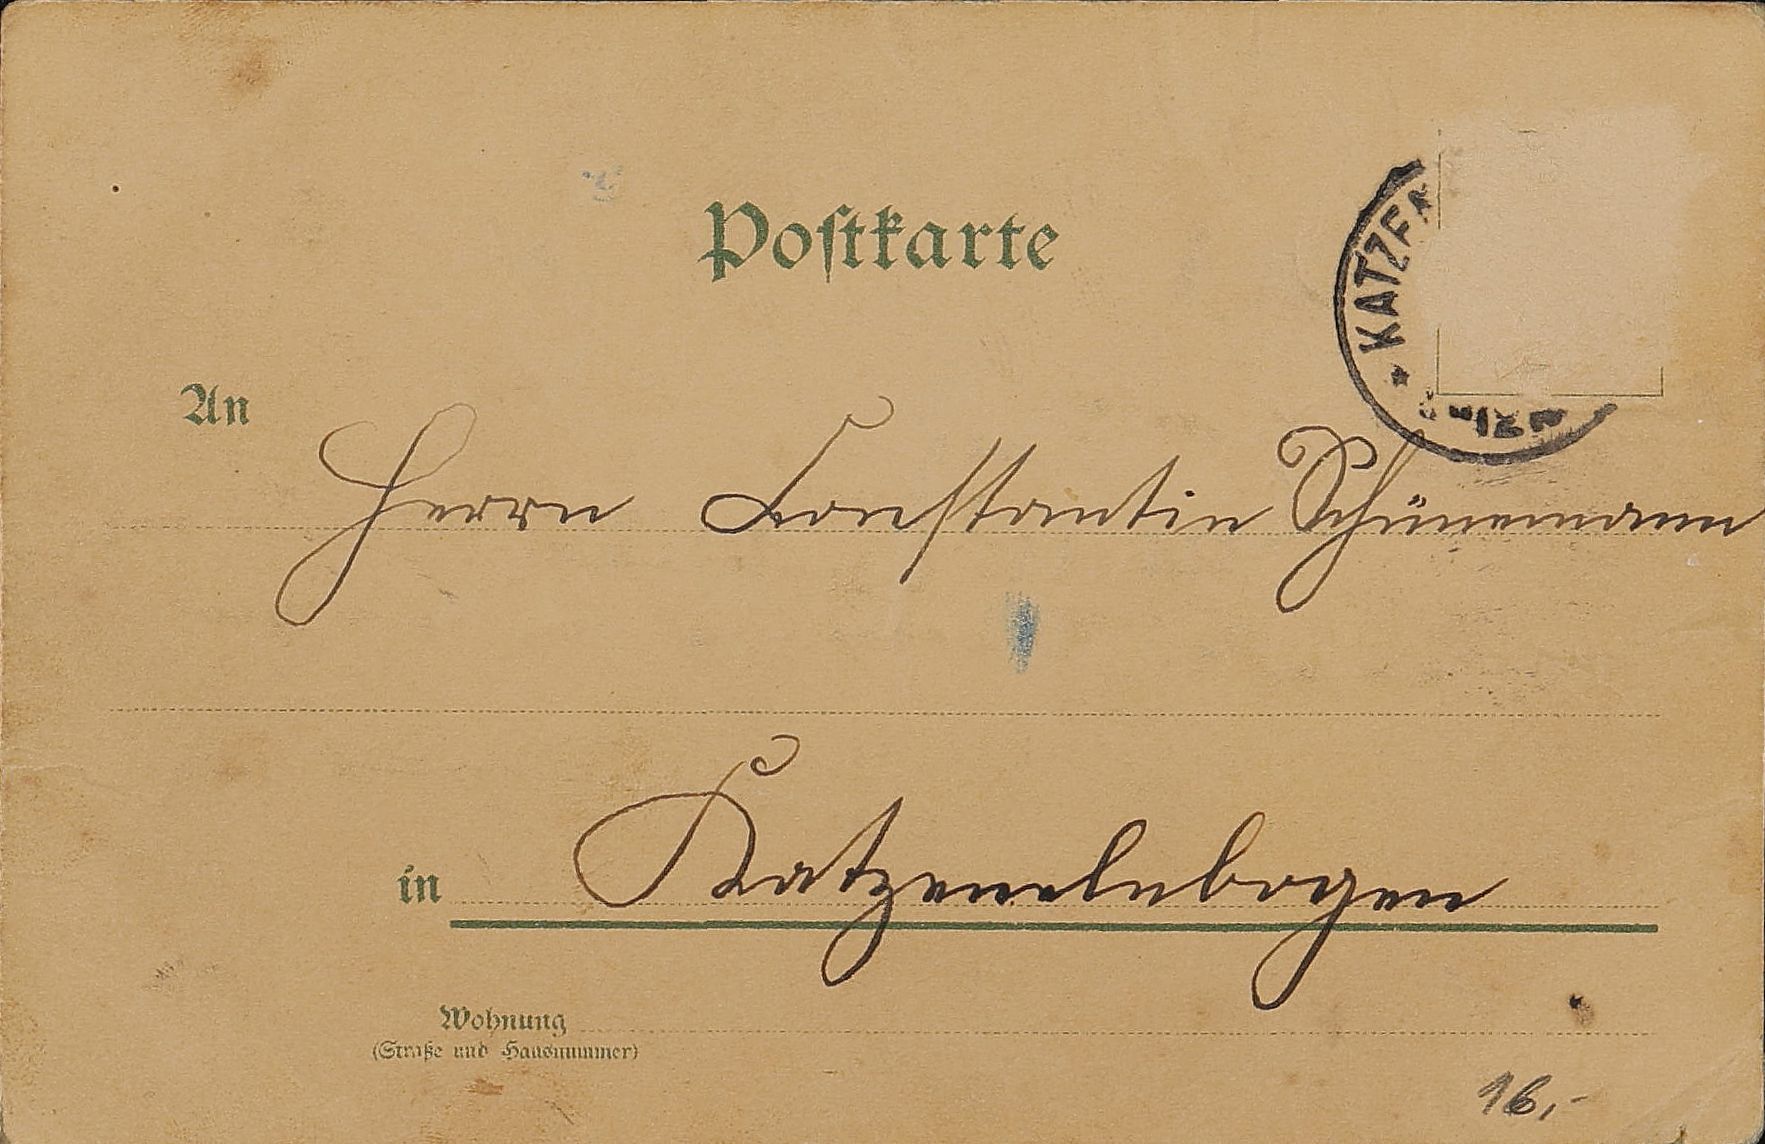 Postkarte
KATZEN
An
Herrn Constantin Schünemann
in Katzenelnbogen
Wohnung
(Straße und Hausnummer)
16,-